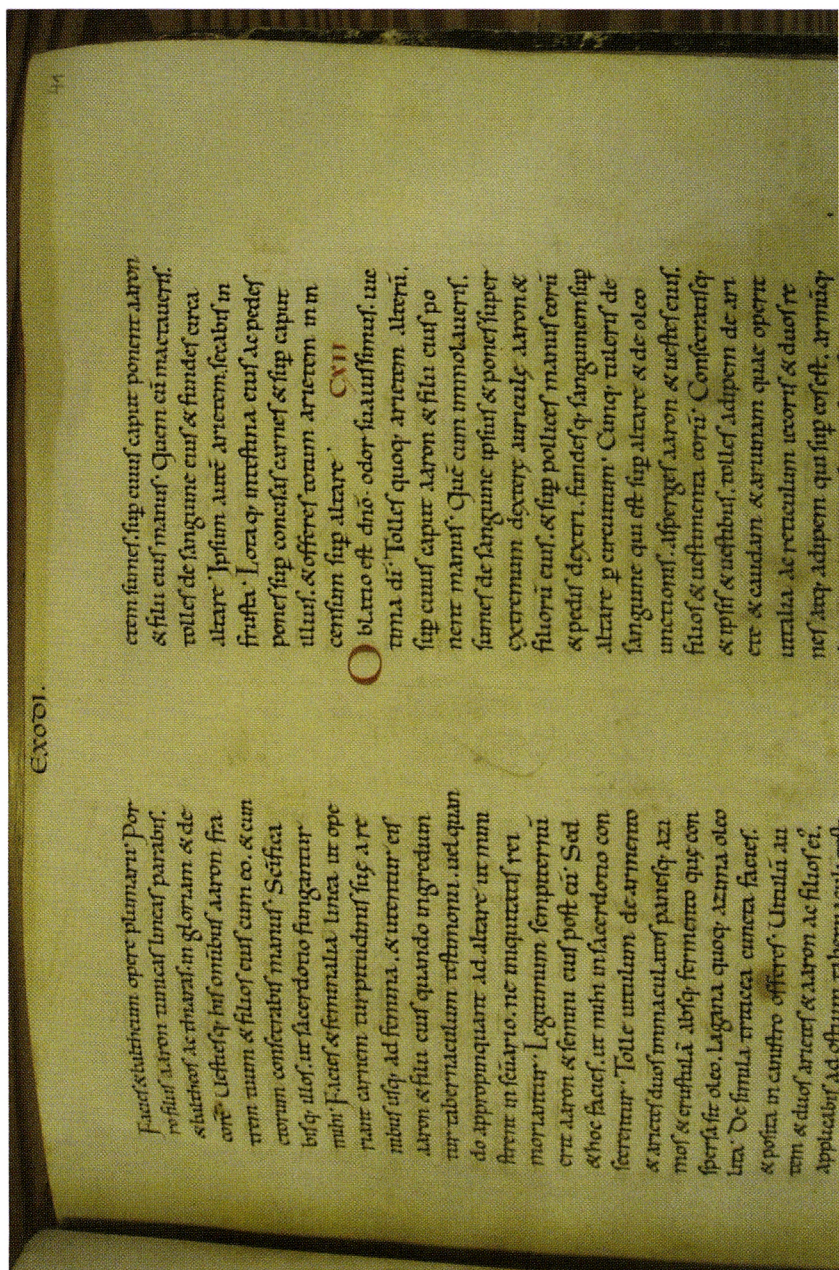 41
EXODI.
Facies & baltheum opere plumarii. Por
ro filiis aaron tunicas lineas parabis.
& baltheos ac thiaras. in gloriam & de
core. Uestiesq; his omibus aaron fra
trem tuum & filios eius cum eo. & cun
ctorum consecrabis manus. Scifica
bisq; illos. ut sacerdotio fungantur
mihi. Facies & feminalia linea ut ope
riant carnem turpitudinis suę a re
nibus usq; ad femina. & utentur eis
aaron & filii eius quando ingredien
tur tabernaculum testimonii. uel quan
do appropinquant ad altare ut mini
strent in scuario. ne iniquitatis rei
moriantur. Legitimum sempiternū
erit aaron & semini eius post eū. Sed
& hoc facies. ut mihi in sacerdotio con
secrentur. Tolle uitulum de armento
& arietes duos immaculatos panesq; azi
mos & crustulā absq; fermento quę con
spersa sit oleo. Lagana quoq; azima oleo
lita. De simila triticea cuncta facies.
& posita in canistro offeres. Uitulū au
tem & duos arietes & aaron ac filios ei.
applicabis ad ostium
etem sumes. sup cuius caput ponent aaron
& filii eius manus. Quem cū mactaueris.
tolles de sanguine eius & fundes circa
altare. Ipsum autē arietem secabis in
frusta. Lotaq; intestina eius ac pedes
pones sup concisas carnes & sup caput
illius. & offeres totum arietem in in
censum sup altare. CXII
Oblatio est dnō. odor suauissimus. uic
tima di. Tolles quoq; arietem alterū.
sup cuius caput aaron & filii eius po
nent manus. Quē cum immolaueris.
sumes de sanguine ipsius & pones super
extremum dextere auriculę aaron &
filiorū eius. & sup pollices manus eorū
& pedis dextri. fundesq; sanguinem sup
altare p circuitum. Cumq; tuleris de
sanguine qui est sup altare & de oleo
unctionis. asperges aaron & uestes eius.
filios & uestimenta eorū. Consecratisq;
& ipsis & uestibus. tolles adipem de ari
ete & caudam & aruinam quae operit
uitalia ac reticulum iecoris & duos re
nes atq; adipem qui sup eos est. armūq;